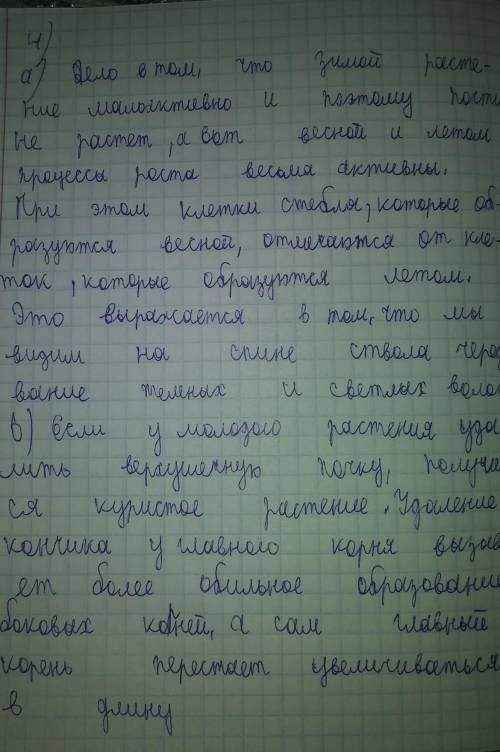 4)
а) Дело в том, что зимой расте-
ние малоактивно и поэтому почти
не растет, а вот весной и летом
процессы роста весьма активны.
При этом клетки стебля, которые об-
разуются весной, отличаются от кле-
ток, которые образуются летом.
Это выражается в том, что мы
видим на спине ствола черед
вание темных и светлых волок
в) Если у молодого растения уда
лить верхушечную почку, получа
ся кустистое растение. Удаление
кончика у главного корня вызыв
ет более обильное образование
боковых корней, а сам главный
корень перестает увеличиваться
в длину